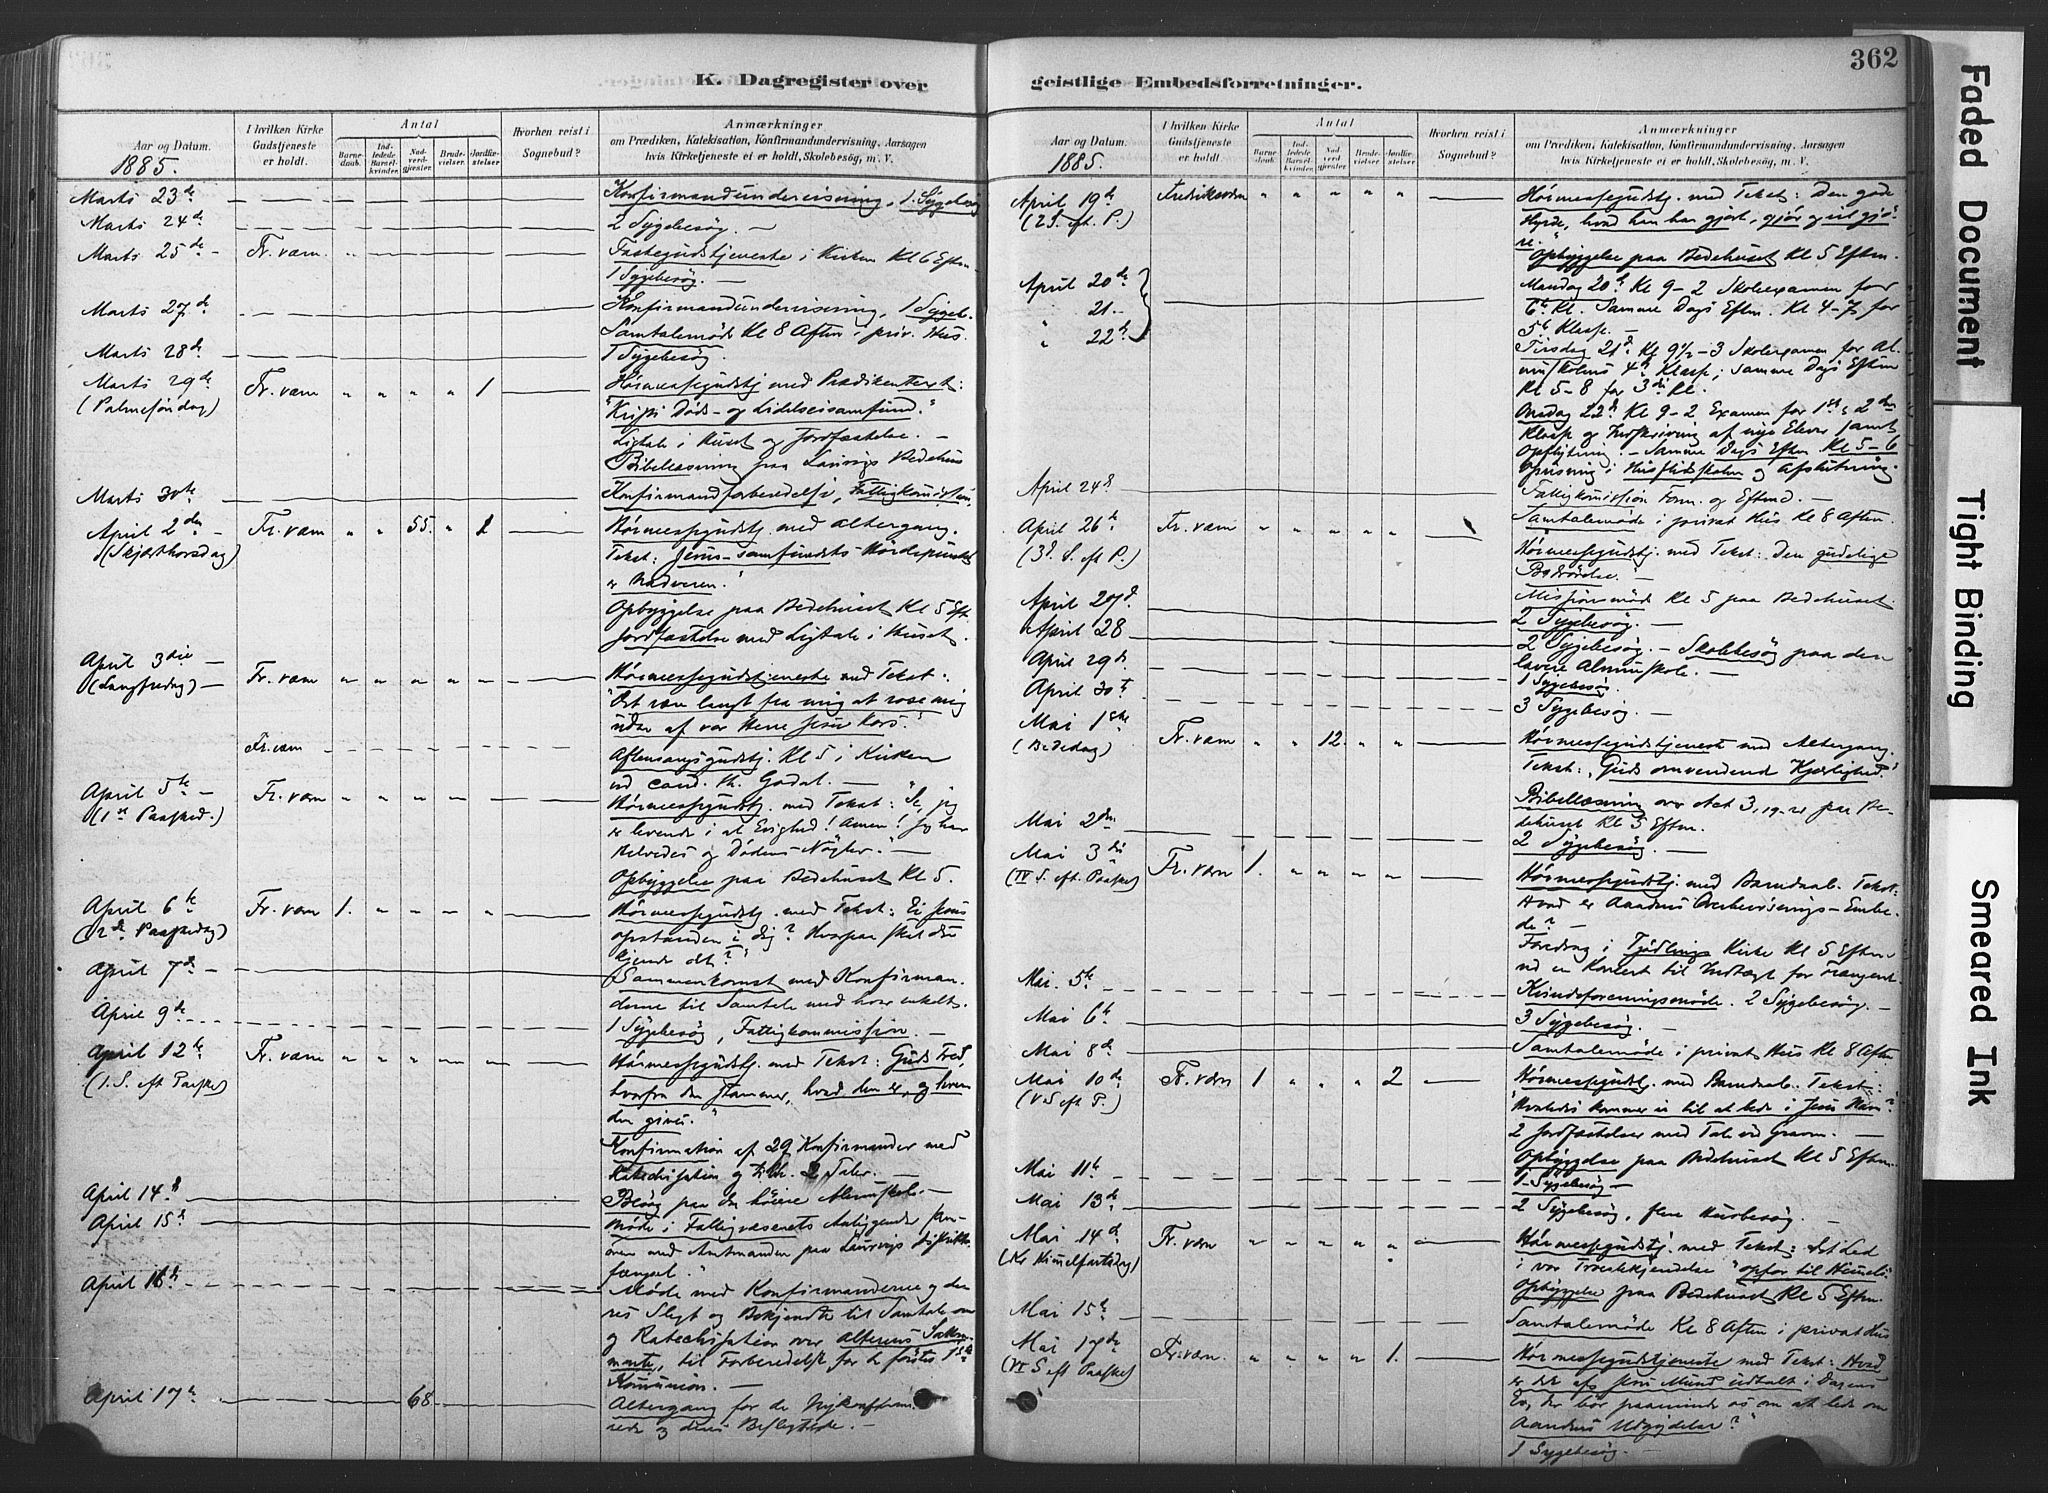 K. Dagregister over
Aar og Datum.
1885.
I hvilken Kirke Gudstjeneste er holdt.
Antal
Barnedaab.
Indledede Barselkvinder.
Nadverdgjester.
Brudevielser.
Jordfæstelser.
Hvorhen reist i Sognebud?
Anmærkninger
om Prædiken, Katekisation, Konfirmandundervisning, Aarsagen
hvis Kirketjeneste ei er holdt, Skolebesøg, m. V.
Marts 23de Konfirmandundervisning, 1 Sygebesøg
Marts 24de 2 Sygebesøg. —
Marts 25de Fr. værn " Fastegudstjeneste i Kirken Kl 6 Eftm
1 Sygebesøg. —
Marts 27de Konfirmandundervisning, 1 Sygeb.
Samtalemøde Kl 8 Aften i priv. Hus.
Marts 28de 1 Sygebesøg.
Marts 29de Fr. værn " " " " 1 Høimessegudstj med Prædikentext:
(Palmesøndag) "Kristi Døds- og Lidelsessamfund."
Ligtale i Huset og Jordfæstelse. —
Bibellæsning paa Laurvigs Bedehus
Marts 30te Konfirmandforberedelse, Fattigkomission.
April 2den Fr. værn " " 55. " 1 Høimessegudstj. med Altergang.
(Skjærthorsdag) Tekst: Jesus-samfundets
er Nadveren."
Opbyggelse paa Bedehuset Kl 5 Eft.
Jordfæstelse med Ligtale i Huset.
April 3die
(Langfredag) Fr. værn " " " " " Høimessegudstjeneste med Tekst:
"Det være langt fra mig at rose mig
uden af vor Herre Jesu Kors."
Fr. værn Aftensangsgudstj. Kl 5 i Kirken
ved cand. th. Godal. —
April 5te Fr. værn " " " " " Høimessegudstj. med Tekst: "Se, jeg
(1ste Paasked.) er levende i al Evighed! Amen! Jeg har
Helvedes og Dødens Nøgler." —
Opbyggelse paa Bedehuset Kl 5.
April 6te Fr. værn 1. " " " " Høimessegudstj. med Tekst: Er Jesus
(2de Paaskedag) opstanden i dig? Hvorpaa skal du
kjende det?"
April 7de Sammenkomst med Konfirman-
derne til Samtale med hver enkelt.
April 9de 1 Sygebesøg, Fattigkommission. —
April 12te Fr. værn " " " " " Høimessegudstj. med Tekst: Guds Fred,
(1. S. eft Paaske) hvorfra den stammer, hvad den er, og hvem
den gives."
Konfirmation af 29 Konfirmander med
Katechisation og 2 Taler. —
April 14de Besøg paa den høiere Almuskole. —
April 15de Møde i Fattigvæsenets Anliggender
med Amtmanden paa Laurvigs Distrikts-
fængsel."
April 16de Møde med Konfirmanderne og de-
res Slegt og Bekjendte til Samtale om
og Katechisation over Alterens Sakra-
mente, til Forberedelse for de førstes 1ste
Komunion. —
April 17de 68. Altergang for de Nykonfirme-
rede og deres Beslegtede. —
geistlige Embedsforretninger.
362
Aar og Datum.
1885.
I hvilken Kirke Gudstjeneste er holdt.
Antal
Barnedaab.
Indledede Barselkvinder.
Nadverdgjester.
Brudevielser.
Jordfæstelser.
Hvorhen reist i Sognebud?
Anmærkninger
om Prædiken, Katekisation, Konfirmandundervisning, Aarsagen
hvis Kirketjeneste ei er holdt, Skolebesøg, m. V.
April 19de Fredriksværn " " " " " Høimessegudstj. med Tekst: Den gode
(2 S. eft. P.) Hyrde, hvad han har gjort, gjør og vil gjø-
re."
Opbyggelse paa Bedehuset Kl 5 Eftm.
April 20de Mandag 20de Kl 9-2 Skoleexamen for
21. 6te Kl. Samme Dags Eftm. Kl 4-7 for
" 22de 5te Klasse. —
Tirsdag 21de Kl 9½-3 Skoleexamen for Al-
muskolens 4de Klasse; Samme Dags Eftm
Kl 5-8 for 3die Kl.
Onsdag 22de Kl 9-2 Examen for 1ste & 2den
Klasse og Indskrivning af nye Elever samt
Opflytning. — Samme Dags Eftm Kl 5-6
i Husflidskolen og Afslutning.
April 24de Fattigkomission Form. og Eftmd. —
Samtalemøde i privat Hus Kl 8 Aften.
April 26te Fr. værn " " " " " Høimessegudstj. med Tekst: Den gudelige
(3de S. eft P.) Bedrøvelse." —
Missionsmøde Kl 5 paa Bedehuset.
April 27de 2 Sygebesøg. —
April 28 2 Sygebesøg. — Skolebesøg paa den
lavere Almuskole. —
April 29de 1 Sygebesøg.
April 30te 3 Sygebesøg. —
Mai 1ste Fr. værn " " 12. " " Høimessegudstjeneste med Altergang.
(Bededag) Tekst: "Guds omvendende Kjærlighed."
Bibellæsning over Act 3, 19-21 paa Be-
dehuset Kl 5 Eftm.
Mai 2den 2 Sygebesøg. —
Mai 3die Fr. værn 1. " " " " Høimessegudstj. med Barndaab. Tekst:
(IV S. eft. Paaske) Hvad er Aandens Overbevisnings-Embe-
de?
Foredrag i Tjødlings Kirke Kl 5 Eftm
ved en Koncert til Indtægt for Trængende.
Mai 5te Kvindeforeningsmøde. 2 Sygebesøg. —
Mai 6te 3 Sygebesøg. —
Mai 8de Samtalemøde i privat Hus Kl 8 Aften
Mai 10de Fr. værn 1 " " " 2 Høimessegudstj. med Barndaab. Tekst:
(V S eft P.) "Hvorledes kommer vi til at bede i Jesu Navn?
2 Jordfæstelser med Tale ved Graven. —
Opbyggelse paa Bedehuset Kl 5 Eftm.
Mai 11te 1 Sygebesøg —
Mai 13de 2 Sygebesøg, flere Husbesøg. —
Mai 14de Fr. værn " " " " " Høimessegudstj. med Tekst: Det Led
(Kr Himmelfartsdag) i vor Troesbekjendelse "opfor til Himmels"
Opbyggelse paa Bedehuset Kl 5 Eftm.
Mai 15te Samtalemøde Kl 8 Aften i privat Hus
Mai 17de Fr. værn. " " " " 1. Høimessegudstjeneste med Tekst: Hvad
(VI S eft Paaske) er det af Jesu Mund udtalt i Dagens
Ev., der bør paaminde os om at bede om
Aandens Udgydelse?"
1 Sygebesøg. —
Faded Document
Tight Binding
Smeared Ink